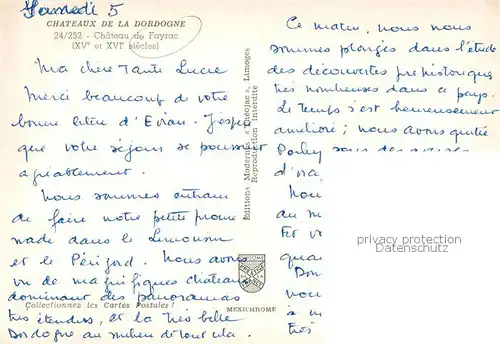 Samedi 5
CHATEAUX DE LA DORDOGNE
24/252 - Château de Fayrac
(XVe et XVIe siècles)
Ma chère Tante Lucie
Merci beaucoup de votre
bonne lettre d'Evian. J'espère
que votre séjour se poursuit
agréablement.
Nous sommes en train
de faire notre petite prome
nade dans le Limousin
et le Périgord. Nous avons
vu de magnifiques châteaux
dominant des panoramas
Collectionnez les Cartes Postales !
très étendus, et la très belle
Dordogne au milieu de tout cela.
Editions Modernes « Théojac », Limoges
Reproduction Interdite
MEXICHROME
Ce matin, nous nous
sommes plongés dans l'étude
des découvertes préhistoriques
très nombreuses dans ce pays.
Le temps s'est heureusement
amélioré ; nous avons quitté
sous des
Nou
au m
Et v
qua
Don
vou
à m
très
privacy protection
Datenschutz